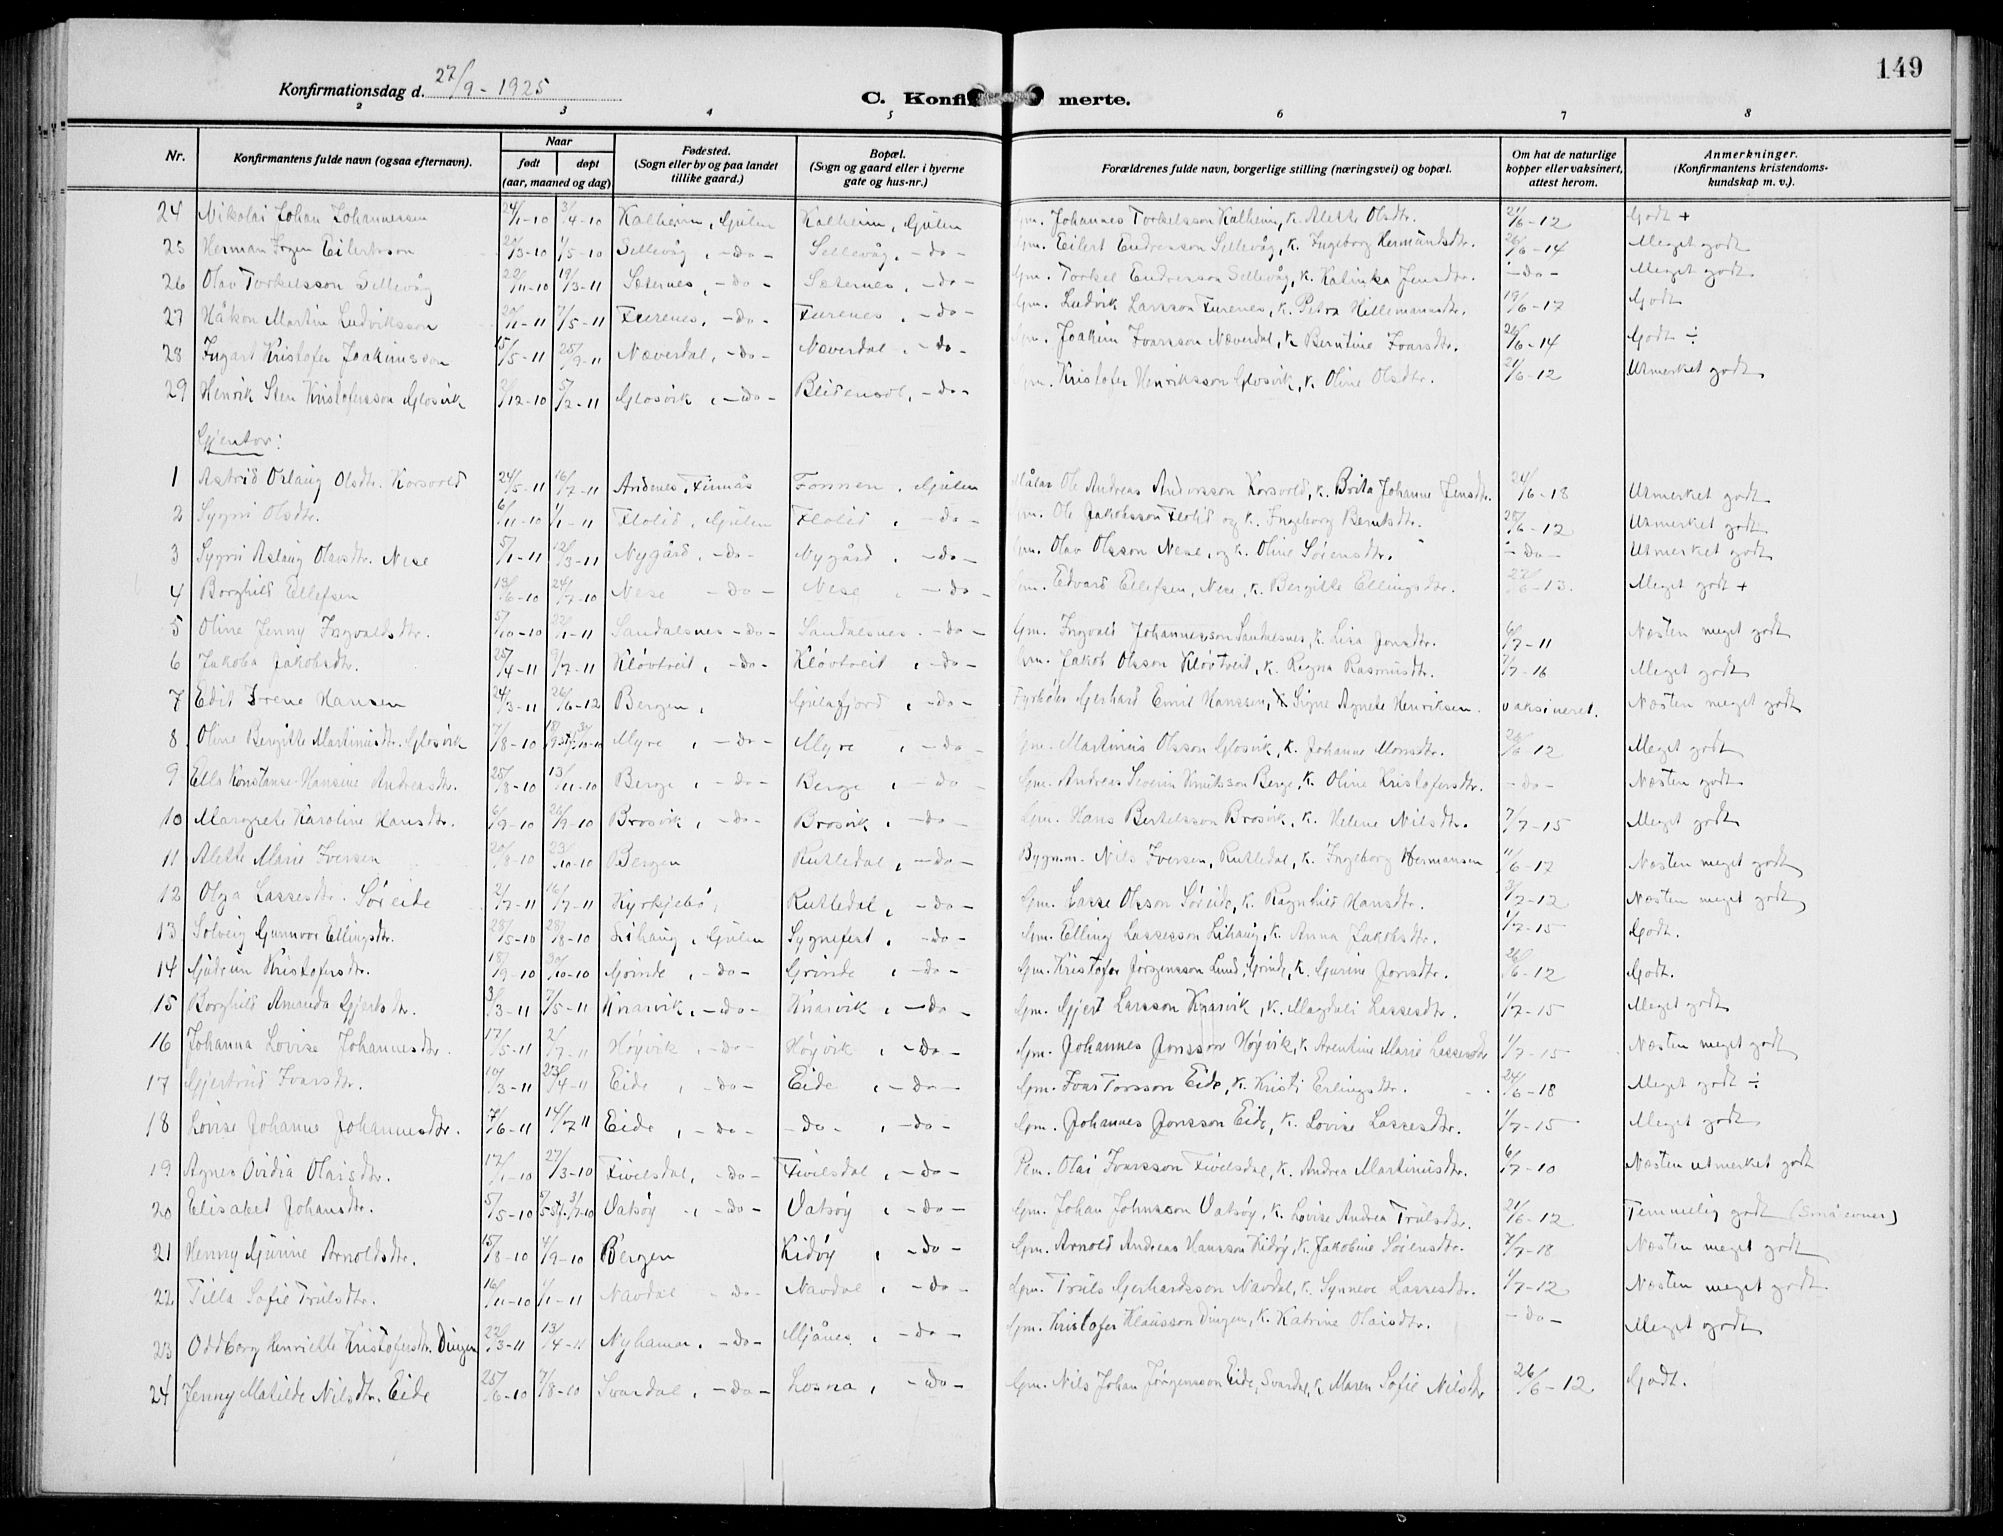 149
Konfirmationsdag d. 27/9 - 1925
C. Konfirmerte.
2 3 4 5 6 7 8
Nr. Konfirmantens fulde navn (ogsaa efternavn). Naar født døpt (aar, maaned og dag) Fødested. (Sogn eller by og paa landet tillike gaard.) Bopæl. (Sogn og gaard eller i byerne gate og hus-nr.) Forældrenes fulde navn, borgerlige stilling (næringsvei) og bopæl. Om hat de naturlige kopper eller vaksinert, attest herom. Anmerkninger. (Konfirmantens kristendomskundskap m. v.).
24 Nikolai Johan Johannessen 24/1-10 3/4-10 Kalheim, Gulen Kalheim, Gulen Gm. Johannes Torkelsson Kalheim, k. Alette Olsdtr. 21/6-12 Godt +
25 Herman Eilertsson 20/3-10 1/5-10 Sellevåg, -do- Sellevåg, -do- Gm. Eilert Endresson Sellevåg, k. Ingeborg Hermundsdtr. 26/6-14 Meget godt
26 Olav Torkelsson Sellevåg 22/11-10 19/3-11 Sæternes, -do- Sæternes, -do- Gm. Torkel Endresson Sellevåg, k. Katinka Jensdtr. -do- Meget godt
27 Håkon Martin Ludviksson 7/5-11 Furenes, -do- Furenes, -do- Gm. Ludvik Larsson Furenes, k. Petra Hillemannsdtr. 19/6-17 Godt
28 Ingart Kristofer Joakimsson 15/5-11 25/9-11 Næverdal, -do- Næverdal, -do- Gm. Joakim Ivarsson Næverdal, k. Berntine Ivarsdtr. 26/6-14 Godt ÷
29 Henrik Sten Kristofersson Glosvik 2/12-10 5/2-11 Glosvik, -do- -do- Gm. Kristofer Henriksson Glosvik, k. Oline Olsdtr. 21/6-12 Utmerket godt
Gjentor:
1 Astrid Oslaug Olsdtr. Korsvold 24/5-11 16/7-11 Andenes, Finnås Fonnen, Gulen Målar Ole Andreas Andersson Korsvold, k. Brita Johanne Jensdtr. 24/6-18 Utmerket godt
2 Sygni Olsdtr. 6/11-10 1/1-11 Flolid, Gulen Flolid, -do- Gm. Ole Jakobsson Flolid og k. Ingeborg Berntsdtr. 20/6-12 Utmerket godt
3 Sygni Aslaug Olavsdtr. Nese 5/1-11 12/3-11 Nygård, -do- Nygård, -do- Gm. Olav Olsson Nese, og k. Oline Sørensdtr. -do- Utmerket godt
4 Borghild Ellefsen 13/6-10 24/7-10 Nese -do- Nese, -do- Gm. Edvard Ellefsen, Nese, k. Bergitte Ellingsdtr. 27/6-13. Meget godt +
5 Oline Jenny Ingvaldsdtr. 5/10-10 22/1-11 Sandalsnes -do- Sandalsnes, -do- Gm. Ingvald Johannesson Sandalsnes, k. Lisa Jonsdtr. 6/7-11 Næsten meget godt
6 Jakoba Jakobsdtr. 25/4-11 9/7-11 Kløvtveit, -do- Kløvtveit, -do- Gm. Jakob Olsson Kløvtveit, k. Ragna Rasmusdtr. 7/7-16 Meget godt
7 Edit Irene Hansen 24/3-11 26/6-12 Bergen, Gulafjord, -do- Fyrbøter Gerhard Emil Hanssen, k. Signe Agnete Henriksen. vaksineret. Næsten meget godt
8 Oline Bergitte Martinusdtr. Glosvik 7/8-10 Myre, -do- Myre, -do- Gm. Martinus Olsson Glosvik, k. Johanne Monsdtr. 20/6-12 Meget godt
9 Ella Konstanse Hansine Andreasdtr. 25/8-10 13/11-10 Berge, -do- Berge, -do- Gm. Andreas Severin Knutsson Berge, k. Oline Kristofersdtr. -do- Næsten godt
10 Margrete Karoline Hansdtr. 6/9-10 26/9-10 Brosvik, -do- Brosvik, -do- Gm. Hans Bertelsson Brosvik, k. Helene Nilsdtr. 7/7-15 Meget godt
11 Alette Marie Iversen 20/8-10 23/10-10 Bergen Rutledal, -do- Bygnm. Nils Iversen, Rutledal, k. Ingeborg Hermansen 11/6-17 Næsten meget godt
12 Olga Lassesdtr. Søreide 2/7-11 16/7-11 Kyrkjebø, Rutledal, -do- Gm. Lasse Olsson Søreide, k. Ragnhild Hansdtr. 3/7-12 Næsten meget godt
13 Solveig Gunnvor Ellingsdtr. 28/5-10 28/8-10 Lihaug, Gulen Sygnefest, -do- Gm. Elling Lassesson Lihaug, k. Anna Jakobsdtr. 1/7-15 Godt.
14 Gudrun Kristofersdtr. 18/9-10 30/10-10 Grinde, -do- Grinde, -do- Gm. Kristofer Jørgensson Lund, Grinde, k. Gurine Jonsdtr. 26/6-12 Godt.
15 Borghild Amanda Gjertsdtr. 3/3-11 7/5-11 Knarvik, -do- Knarvik, -do- Gm. Gjert Larsson Knarvik, k. Magdali Lassesdtr. 1/7-15 Meget godt
16 Johanna Lovise Johannesdtr. 17/5-11 2/7-11 Høyvik, -do- Høyvik, -do- Gm. Johannes Jonsson Høyvik, k. Arentine Marie Lassesdtr 1/7-15 Næsten meget godt
17 Gjertrud Ivarsdtr. 10/3-11 23/4-11 Eide, -do- Eide, -do- Gm. Ivar Torsson Eide, k. Kristi Erlingsdtr. 24/6-18 Meget godt ÷
18 Lovise Johanne Johannesdtr. 7/6-11 14/7 11 Eide, -do- -do-, -do- Gm. Johannes Jonsson Eide, k. Lovise Lassesdtr. 1/7-15 Meget godt
19 Agnes Ovidia Olaisdtr. 17/1-10 27/3-10 Fivelsdal, -do- Fivelsdal, -do- Olai Ivarsson Fivelsdal, k. Andrea Martinusdtr. 6/7-10 Næsten utmerket godt
20 Elisabet Johansdtr. 5/5-10 Vatsøy, -do- Vatsøy, -do- Gm. Johan Johnsson Vatsøy, k. Lovise Andrea Trulsdtr. 21/6-12 Temmelig godt (Små evner)
21 Henny Gurine Arnoldsdtr. 15/8-10 4/9-10 Bergen Kidøy, -do- Gm. Arnold Andreas Hansson Kidøy, k. Jakobine Sørensdtr. 7/7-18 Næsten meget godt
22 Tilla Sofie Trulsdtr. 16/11-10 1/1-11 Navdal -do- Navdal, -do- Gm. Truls Gerhardsson Navdal, k. Synneve Lassesdtr. 1/7-12 Næsten meget godt
23 Oddborg Henriette Kristofersdtr. Dingen 22/3-11 13/4-11 Nyhamar, -do- Mjånes, -do- Gm. Kristofer Klausson Dingen, k. Katrine Olaisdtr. -do- Meget godt
24 Jenny Matilde Nilsdtr. Eide 25/6-10 7/8-10 Svardal, -do- Losna, -do- Gm. Nils Johan Jørgensson Eide, Svardal, k. Maren Sofie Nilsdtr 26/6-12 Godt.